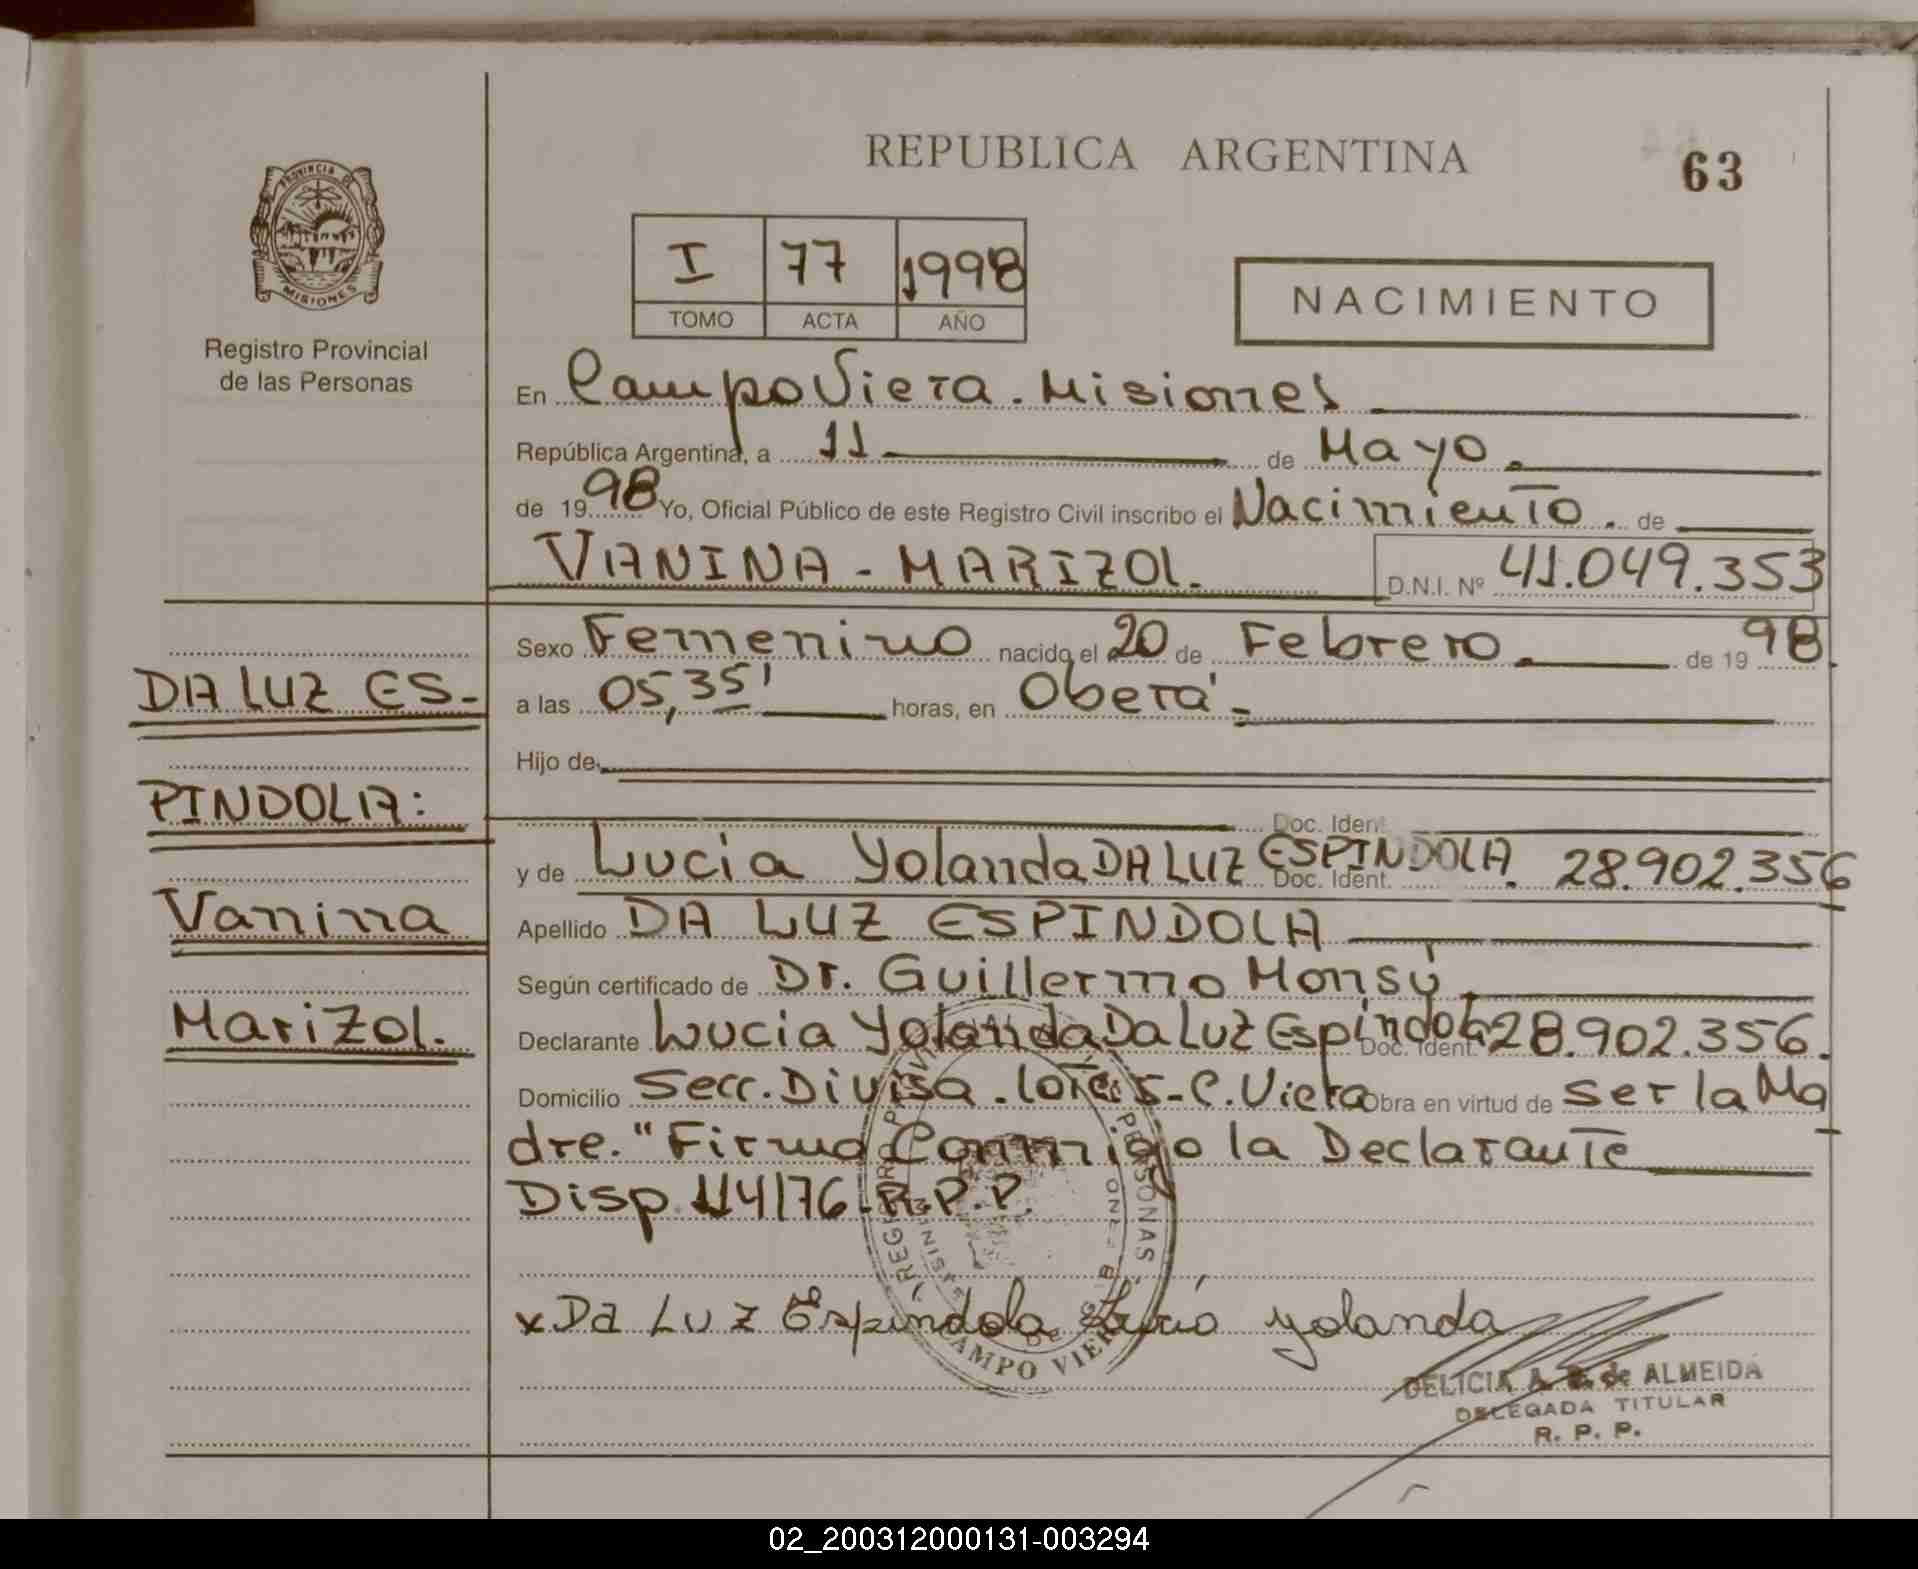 REPUBLICA ARGENTINA
63
PROVINCIA DE
MISIONES
Registro Provincial
de las Personas
I 77 1998
TOMO ACTA AÑO
NACIMIENTO
En Campo Viera. Misiones
República Argentina, a 11 de Mayo.
de 19 98 Yo, Oficial Público de este Registro Civil inscribo el Nacimiento. de
VANINA - MARIZOL. D.N.I. Nº 41.049.353
Sexo Femenino nacido el 20 de Febrero. de 19 98.
DA LUZ ES-
a las 05,35' horas, en Oberá.
Hijo de
PINDOLA:
Doc. Ident.
y de Lucia Yolanda DA LUZ ESPINDOLA. Doc. Ident. 28.902.356
Vanina
Apellido DA LUZ ESPINDOLA
Según certificado de Dr. Guillermo Monsú
Marizol.
Declarante Lucia Yolanda Da Luz Espindola Doc. Ident. 28.902.356.
Domicilio Secc. Divisa. lote 5-C. Viera Obra en virtud de ser la Ma
dre. "Firma Conmigo la Declarante
Disp. 114/76-R.P.P.
x Da Luz Espindola Lucia yolanda
CAMPO VIERA
DELICIA A. de ALMEIDA
DELEGADA TITULAR
R. P. P.
02_200312000131-003294